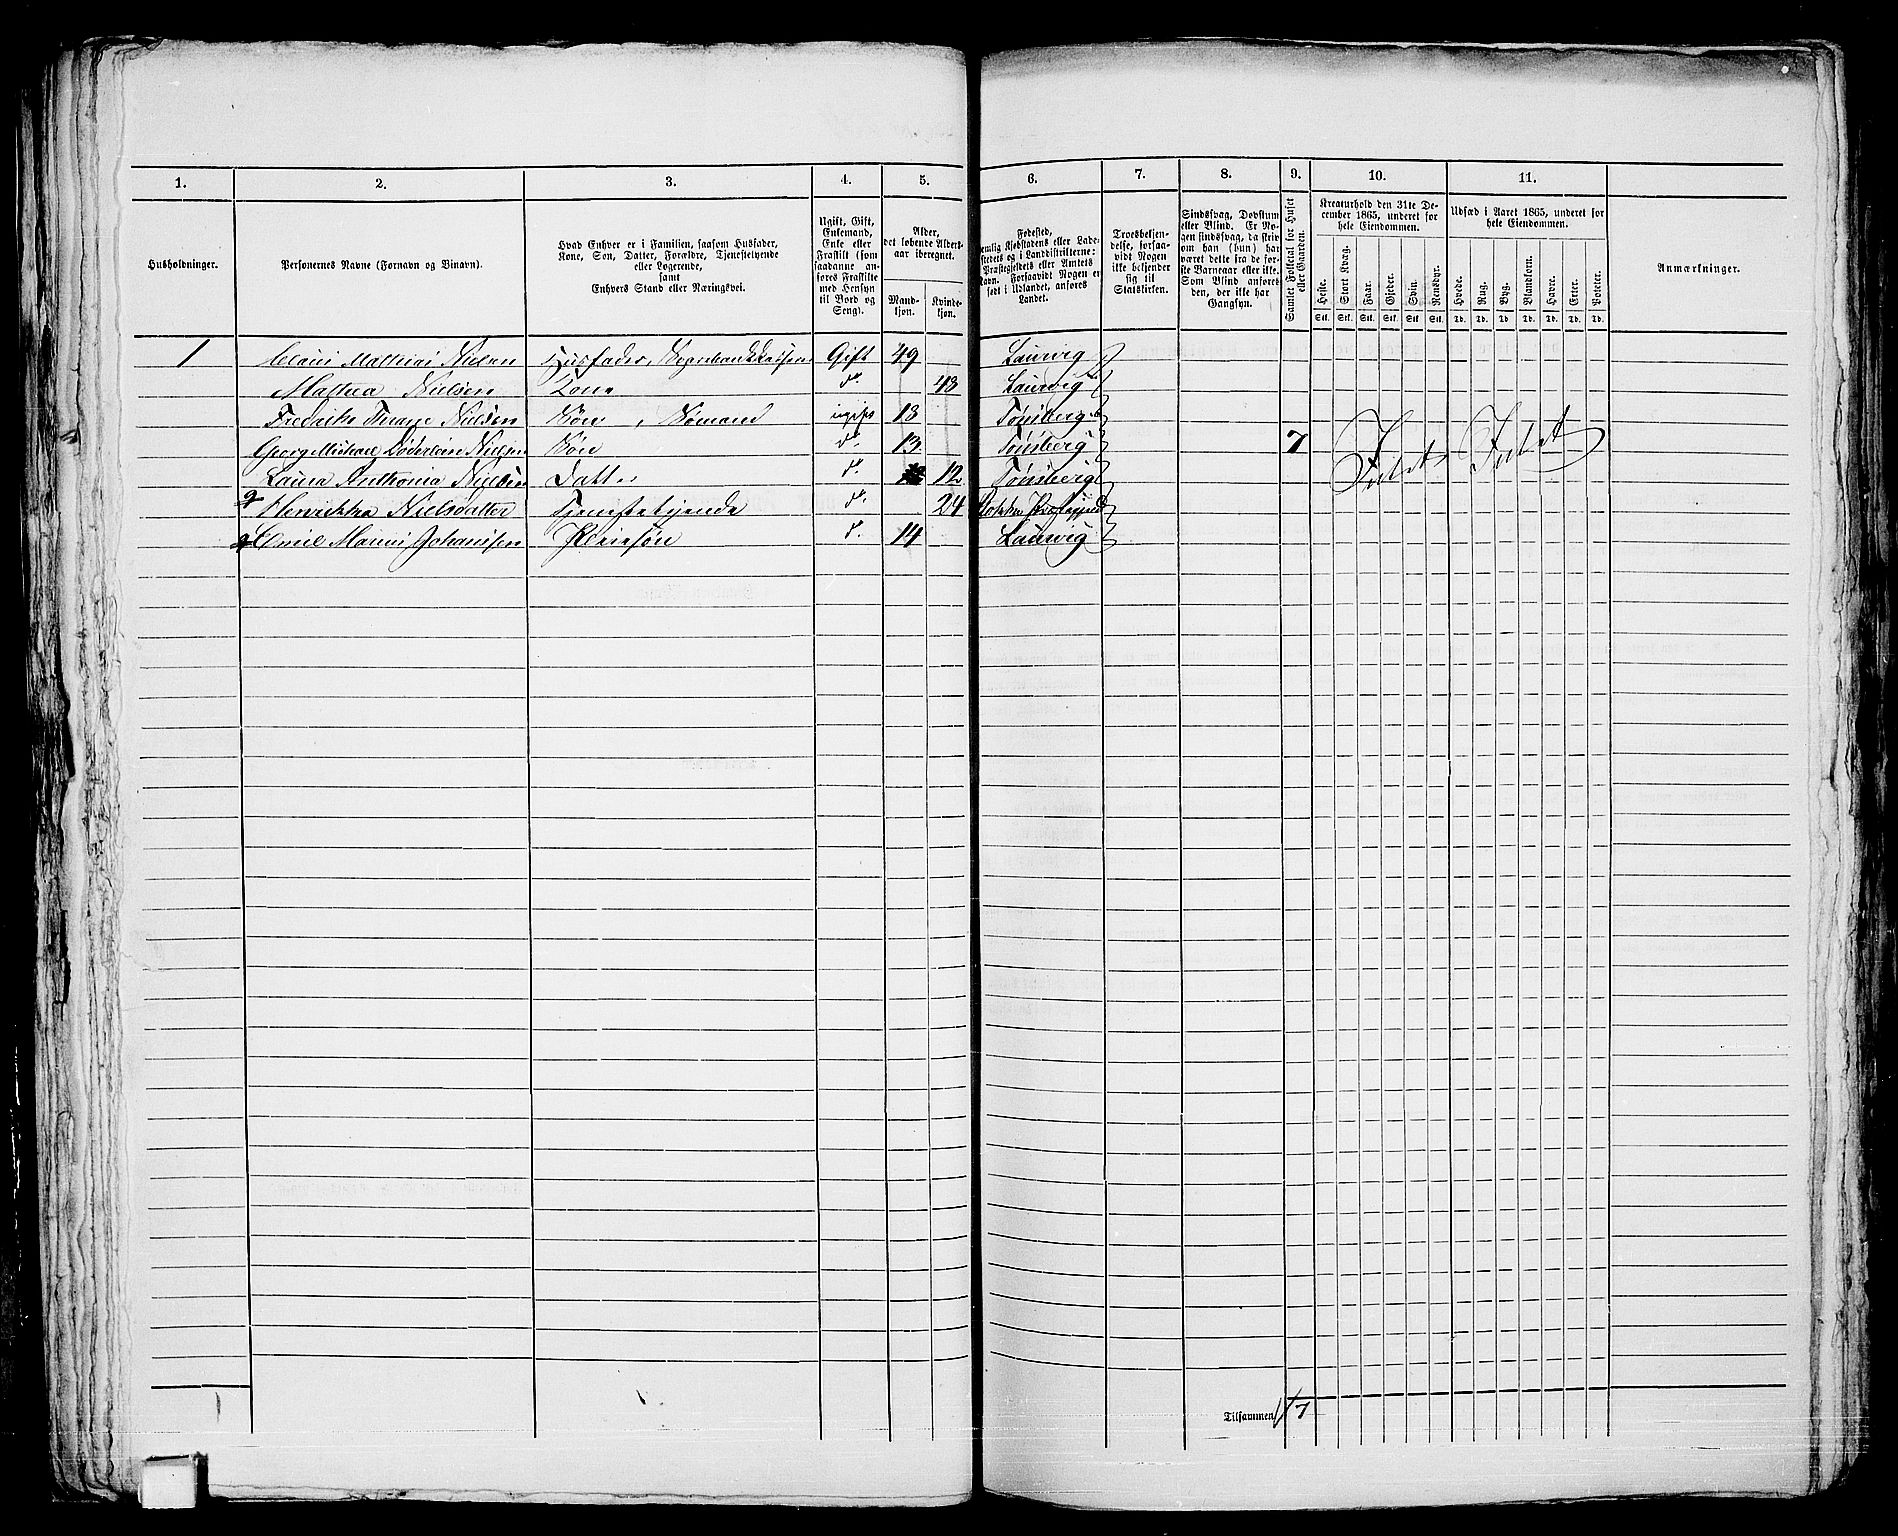 1. 2. 3. 4. 5. 6. 7. 8. 9. 10. 11.
Husholdninger.
Personernes Navne (Fornavn og Binavn).
Hvad Enhver er i Familien, saasom Husfader,
Kone, Søn, Datter, Forældre, Tjenestetyende
eller Logerende,
samt
Enhvers Stand eller Næringsvei.
Ugift, Gift,
Enkemand,
Enke eller
Fraskilt (som
saadanne an-
føres Fraskilte
med Hensyn
til Bord og
Seng).
Alder,
det løbende Alders-
aar iberegnet.
Mand-
kjøn.
Kvinde-
kjøn.
Fødested,
nemlig Kjøbstadens eller Lade-
stedets og i Landdistrikterne:
Præstegjeldets eller Amtets
Navn. Forsaavidt Nogen er
født i Udlandet, anføres
Landet.
Troesbekjen-
delse, forsaa-
vidt Nogen
ikke bekjender
sig til
Statskirken.
Sindssvag, Døvstum
eller Blind. Er No-
gen sindssvag, da skriv
om han (hun) har
været dette fra de før-
ste Barneaar eller ikke.
Som Blind anføres
den, der ikke har
Gangsyn.
Samlet Folketal for Huset
eller Gaarden.
Kreaturhold den 31te De-
cember 1865, underet for
hele Eiendommen.
Heste. Stort Kvæg. Faar. Gjeder. Svin. Rensdyr.
Stk. Stk. Stk. Stk. Stk. Stk.
Udsæd i Aaret 1865, underet for
hele Eiendommen.
Hvede. Rug. Byg. Blandkorn. Havre. Erter. Poteter.
Td. Td. Td. Td. Td. Td. Td.
Anmærkninger.
1 Claus Mathias Nielsen Husfader, Gift 49 Laurvig
Mathea Nielsen Kone do. 43 Laurvig
Fredrik Nielsen Søn, Sømand ugift 18 Tønsberg
Georg Michael Nielsen Søn do. 13 Tønsberg 7 Intet Intet
Laura Anthonia Nielsen Datter do. 12 Tønsberg
Henrikka Nielsdatter Tjenestetyende do. 24
Emil Johansen Pleiesøn do. 14 Laurvig
Tilsammen 7